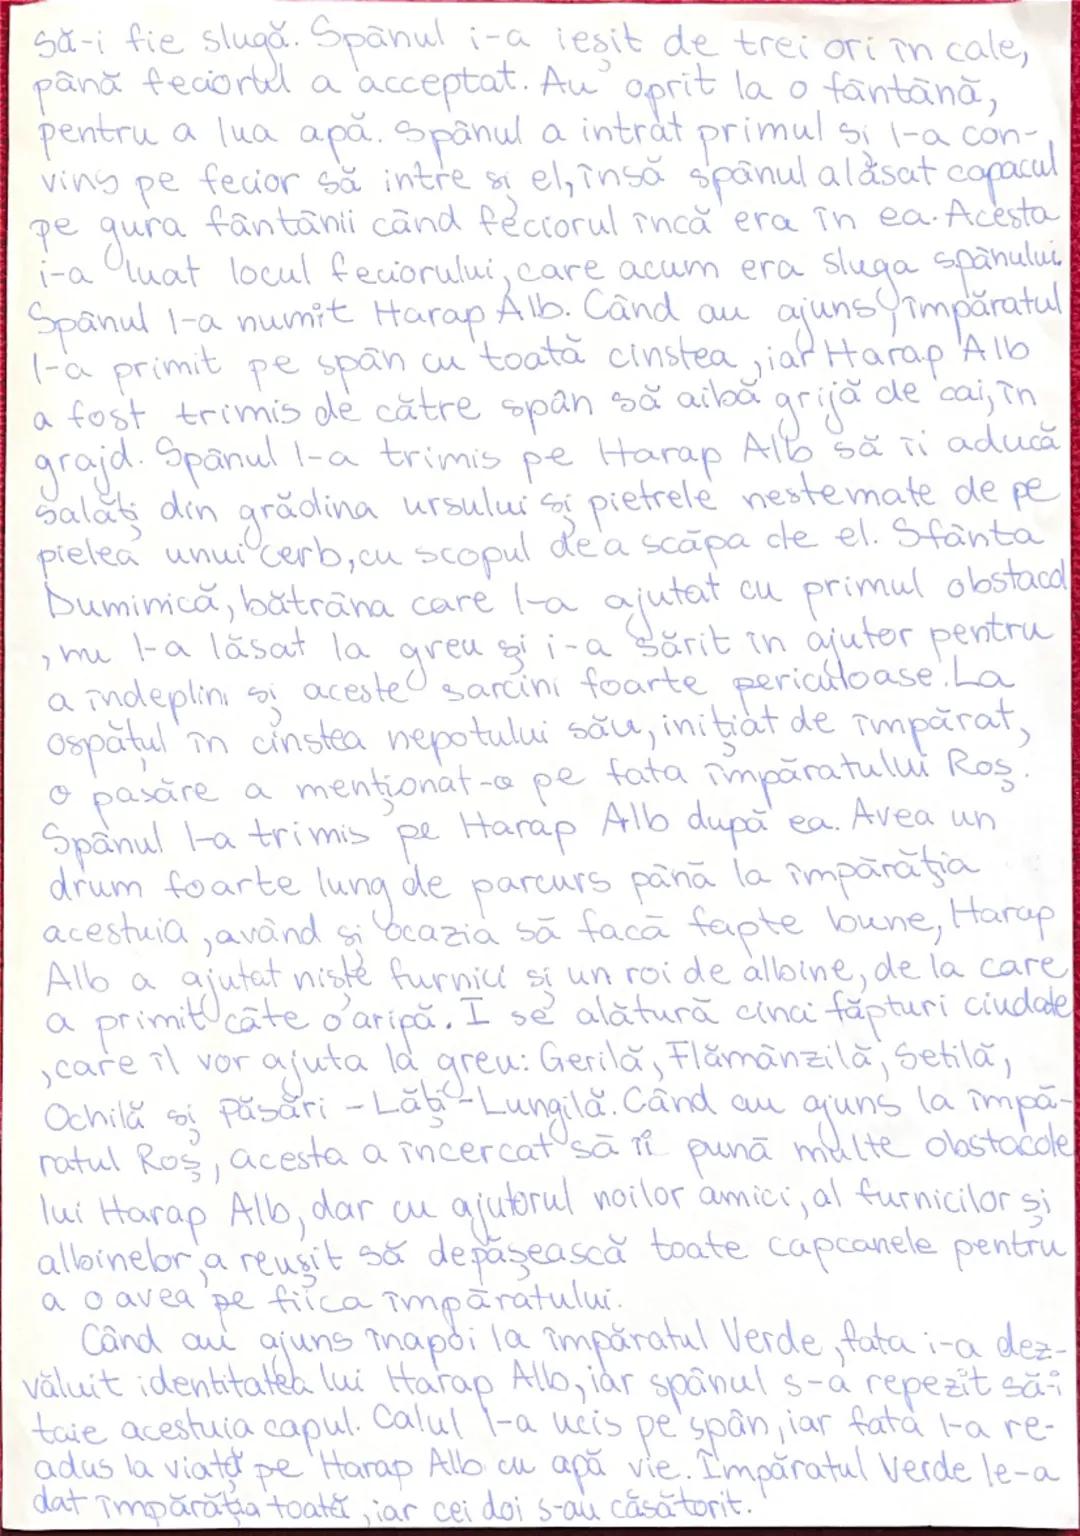 să-i fie slugă. Spânul i-a ieșit de trei ori în cale,
până feciorul a acceptat. Au oprit la o fântână,
pentru a lua apă. Spânul a intrat primul și l-a con-
vins pe fecior să intre și el, însă spânul a lăsat capacul
pe gura fântânii când feciorul încă era în ea. Acesta
i-a luat locul feciorului, care acum era sluga spânului.
Spânul l-a numit Harap Alb. Când au ajuns, împăratul
l-a primit pe spân cu toată cinstea, iar Harap Alb
a fost trimis de către spân să aibă grijă de cai, în
grajd. Spânul l-a trimis pe Harap Alb să îi aducă
salăți din grădina ursului și pietrele nestemate de pe
pielea unui cerb, cu scopul de a scăpa de el. Sfânta
Duminică, bătrâna care l-a ajutat cu primul obstacol
, nu l-a lăsat la greu și i-a sărit în ajutor pentru
a îndeplini și aceste sarcini foarte periculoase. La
ospățul în cinstea nepotului său, inițiat de împărat,
o pasăre a menționat-o pe fata împăratului Roș.
Spânul l-a trimis pe Harap Alb după ea. Avea un
drum foarte lung de parcurs până la împărăția
acestuia, având și ocazia să facă fapte bune, Harap
Alb a ajutat niște furnici și un roi de albine, de la care
a primit câte o aripă. I se alătură cinci făpturi ciudate
, care îl vor ajuta la greu: Gerilă, Flămânzilă, Setilă,
Ochilă și Păsări-Lăți-Lungilă. Când au ajuns la împă-
ratul Roș, acesta a încercat să îi pună multe obstacole
lui Harap Alb, dar cu ajutorul noilor amici, al furnicilor și
albinelor, a reușit să depășească toate capcanele pentru
a o avea pe fiica împăratului.
Când au ajuns înapoi la împăratul Verde, fata i-a dez-
văluit identitatea lui Harap Alb, iar spânul s-a repezit să-i
taie acestuia capul. Calul l-a ucis pe spân, iar fata l-a re-
adus la viață pe Harap Alb cu apă vie. Împăratul Verde le-a
dat împărăția toată, iar cei doi s-au căsătorit.